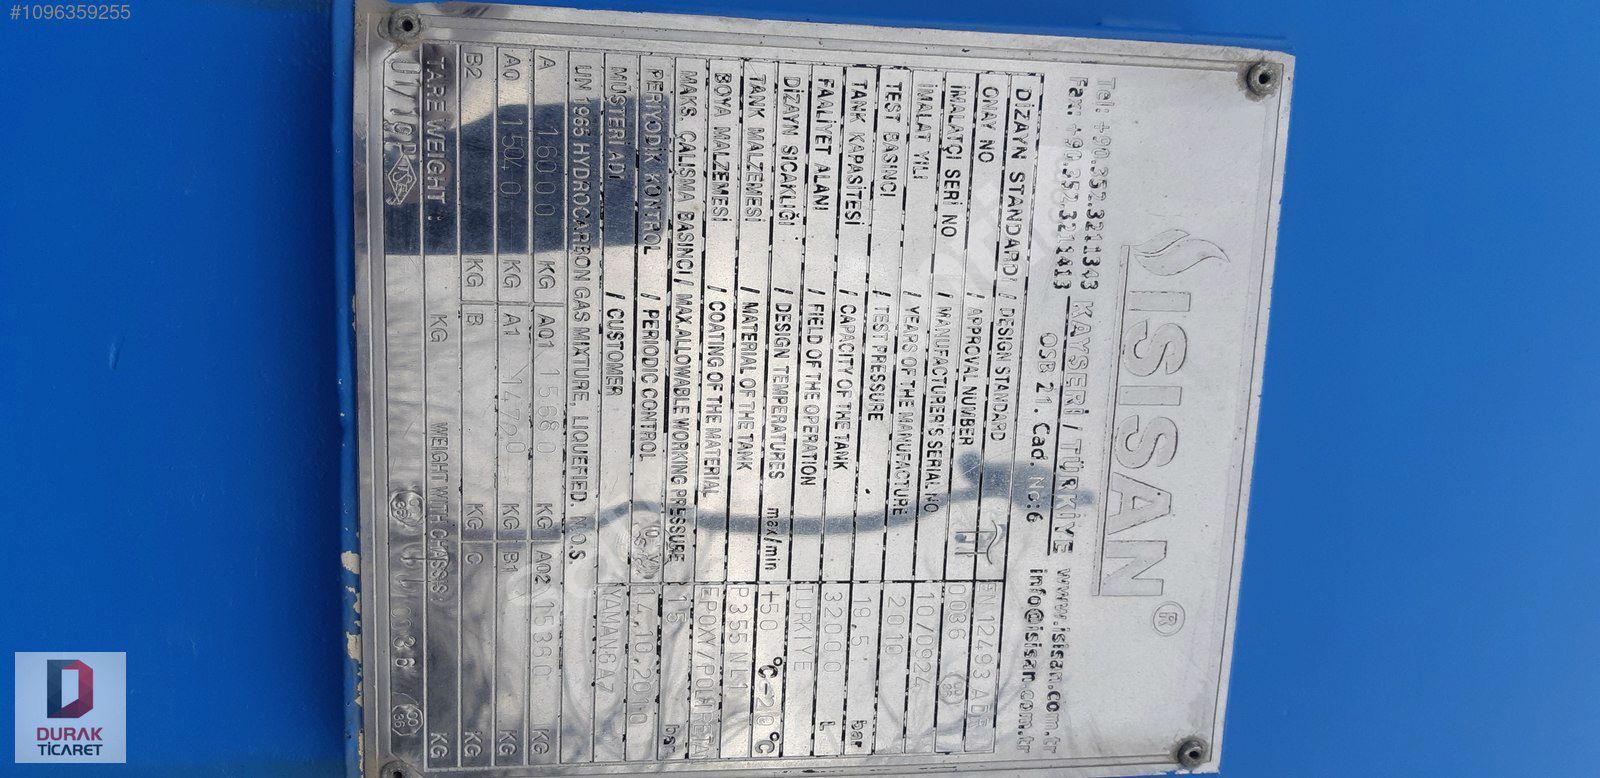 #1096359255
ISISAN®
Tel: +90.352.3211343 KAYSERİ / TÜRKİYE www.isisan.com.tr
Fax: +90.352.3211413 OSB 21. Cad. No:6 info@isisan.com.tr
DİZAYN STANDARDI / DESIGN STANDARD EN 12493 ADR
ONAY NO / APPROVAL NUMBER 0036
İMALATÇI SERİ NO / MANUFACTURER'S SERIAL NO 10/0924
İMALAT YILI / YEARS OF THE MANUFACTURE 2010
TEST BASINCI / TEST PRESSURE 19,5 bar
TANK KAPASİTESİ / CAPACITY OF THE TANK 32000 L
FAALİYET ALANI / FIELD OF THE OPERATION TURKIYE
DİZAYN SICAKLIĞI / DESIGN TEMPERATURES max/min +50 °C -20 °C
TANK MALZEMESİ / MATERIAL OF THE TANK P355 NL1
BOYA MALZEMESİ / COATING OF THE MATERIAL EPOXY/POLIRETA
MAKS. ÇALIŞMA BASINCI / MAX.ALLOWABLE WORKING PRESSURE 15 bar
PERİYODİK KONTROL / PERIODIC CONTROL 14.10.2010
MÜŞTERİ ADI / CUSTOMER YAMANGAZ
UN 1965 HYDROCARBON GAS MIXTURE, LIQUEFIED. N.O.S.
A 16000 KG A01 15680 KG A02 15360 KG
A0 15040 KG A1 14720 KG B1 KG
B2 KG B KG C KG
TARE WEIGHT : KG WEIGHT WITH CHASSIS) KG
TSE 0036
DURAK
TİCARET